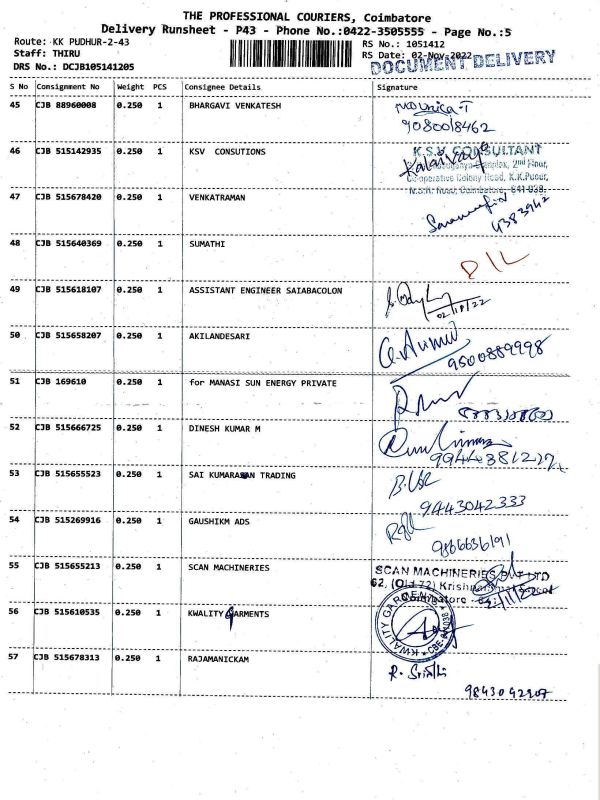 THE PROFESSIONAL COURIERS, Coimbatore
Delivery Runsheet - P43 - Phone No.:0422-3505555 - Page No.:5
Route: KK PUDHUR-2-43
RS No.: 1051412
Staff: THIRU
RS Date: 02-Nov-2022
DRS No.: DCJB105141205
DOCUMENT DELIVERY
S No Consignment No Weight PCS Consignee Details Signature
45 CJB 88960008 0.250 1 BHARGAVI VENKATESH
9080018462
46 CJB 515142935 0.250 1 KSV CONSUTIONS K.S.V. CONSULTANT
2nd Floor,
Co-operative Colony Road, K.K.Pudur,
N.S.R. Road, Coimbatore - 641 038.
47 CJB 515678420 0.250 1 VENKATRAMAN
48 CJB 515640369 0.250 1 SUMATHI
D/L
49 CJB 515618107 0.250 1 ASSISTANT ENGINEER SAIABACOLON
50 CJB 515658207 0.250 1 AKILANDESARI
9500889998
51 CJB 169610 0.250 1 for MANASI SUN ENERGY PRIVATE
52 CJB 515666725 0.250 1 DINESH KUMAR M
53 CJB 515655523 0.250 1 SAI KUMARASAN TRADING
9443042333
54 CJB 515269916 0.250 1 GAUSHIKM ADS
55 CJB 515655213 0.250 1 SCAN MACHINERIES SCAN MACHINERIES PVT LTD
62, (Old 72)
Coimbatore
56 CJB 515610535 0.250 1 KWALITY GARMENTS KWALITY GARMENTS
57 CJB 515678313 0.250 1 RAJAMANICKAM